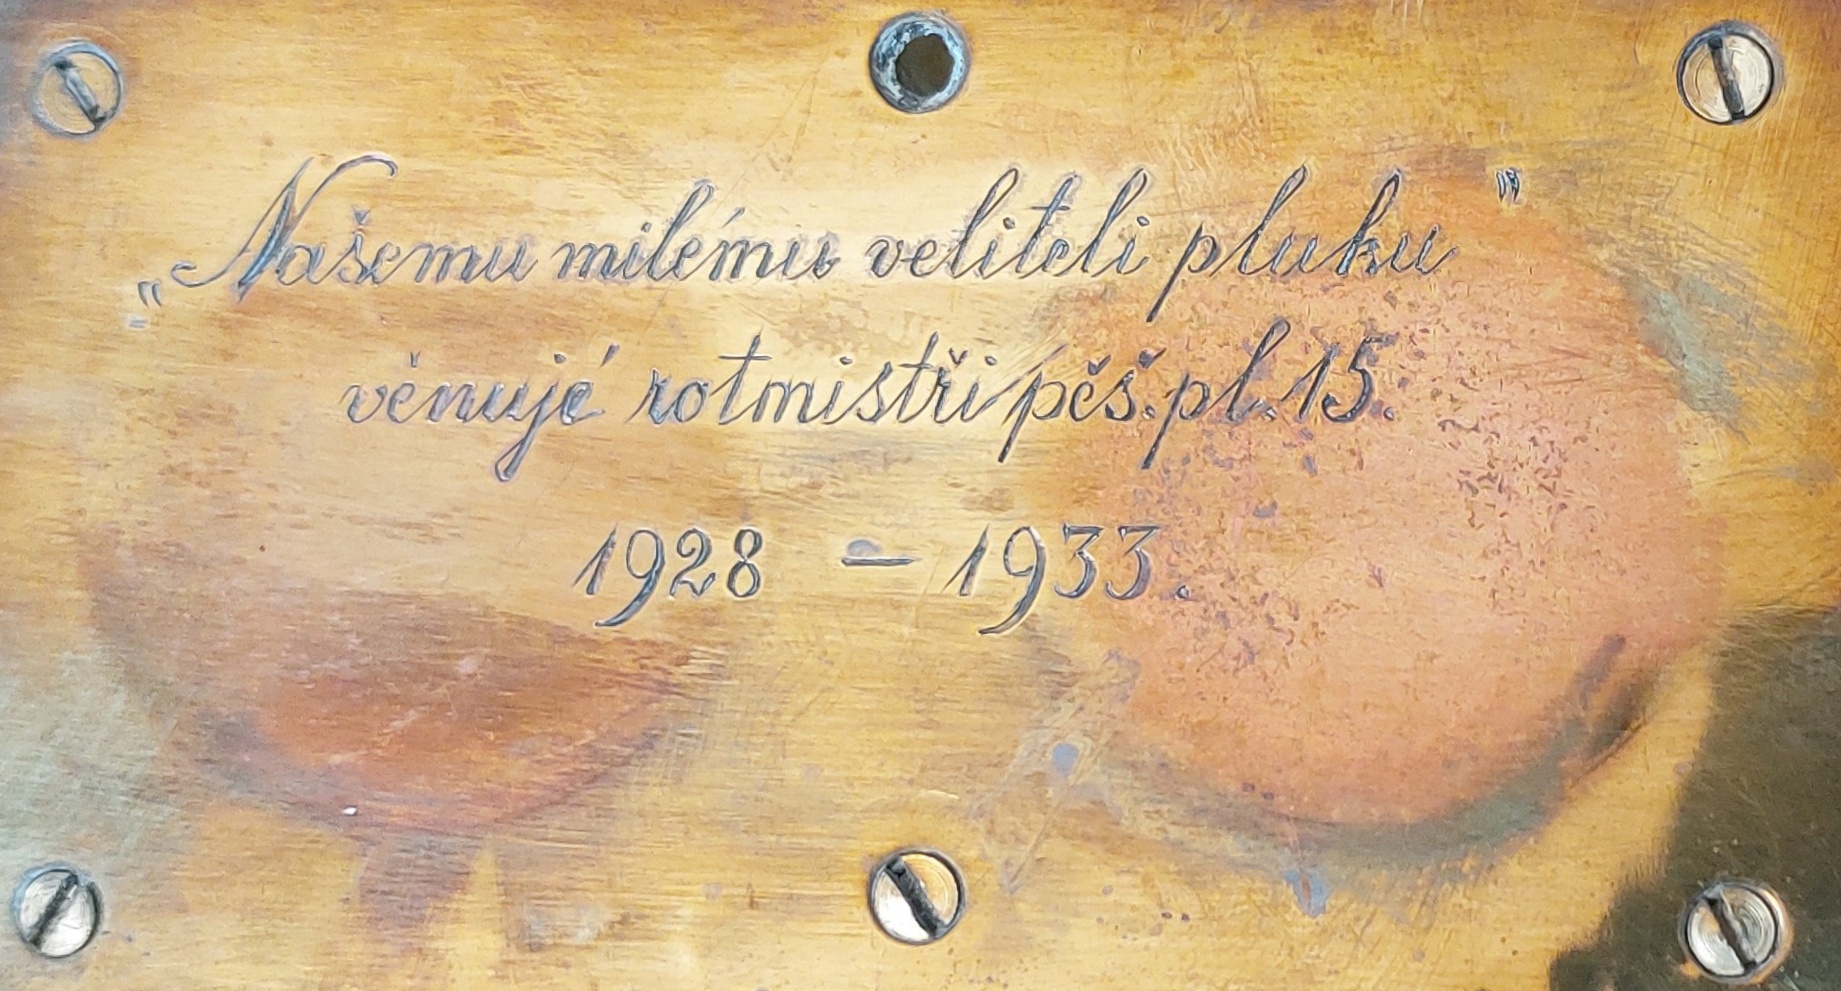 „Našemu milému veliteli pluku"
věnujé rotmistři pěš. pl. 15.
1928 – 1933.